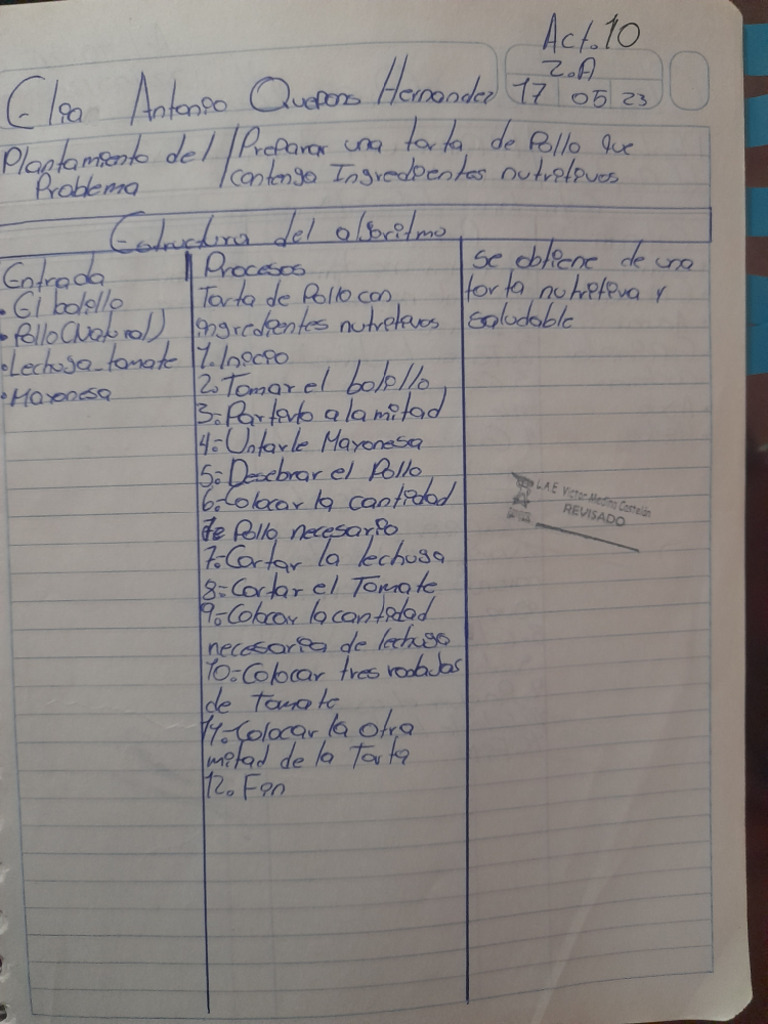 Act. 10
2.A
Elia Antonio Hernandez
17 05 23
Plantamiento del Problema
Preparar una torta de Pollo que
contenga Ingredientes nutritivos
Estructura del algoritmo
Entrada
• El bolillo
• Pollo (Natural)
• Lechuga_tomate
• Mayonesa
Procesos
Torta de Pollo con
ingredientes nutritivos
1. Inicio
2. Tomar el bolillo
3.- Partirlo a la mitad
4.- Untarle Mayonesa
5.- Desebrar el Pollo
6.- Colocar la cantidad
de Pollo necesario
7.- Cortar la lechuga
8.- Cortar el Tomate
9.- Colocar la cantidad
necesaria de lechuga
10.- Colocar tres rodadas
de Tomate
11.- Colocar la otra
mitad de la Torta
12. Fin
se obtiene de una
torta nutritiva y
saludable
L.A.E. Victor Medina Castelán
REVISADO